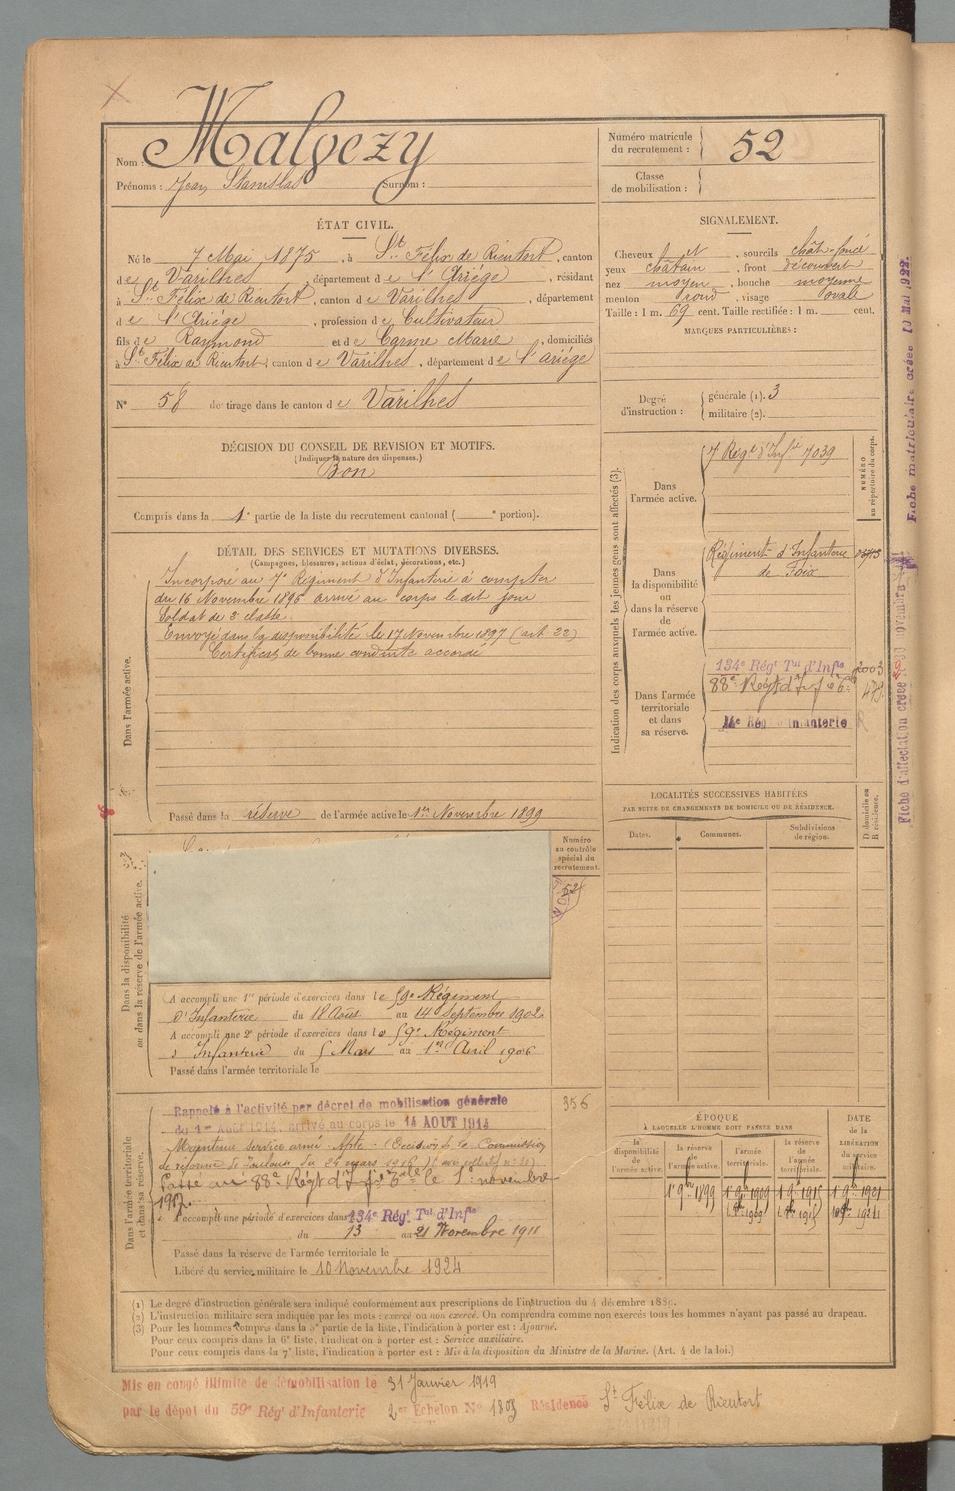 Nom : Malgezy
Prénoms : Jean Stanislas Surnom :
Numéro matricule du recrutement : 52
Classe de mobilisation :
ÉTAT CIVIL.
Né le 7 Mai 1875, à St. Félix de Rieutort, canton
de Varilhes, département de l'Ariége, résidant
à St. Félix de Rieutort, canton de Varilhes, département
de l'Ariége, profession de Cultivateur
fils de Raymond et de Carme Marie, domiciliés
à St. Félix de Rieutort, canton de Varilhes, département de l'ariége
N° 58 de tirage dans le canton de Varilhes
DÉCISION DU CONSEIL DE REVISION ET MOTIFS.
(Indiquer la nature des dispenses.)
Bon
Compris dans la 1e partie de la liste du recrutement cantonal ( e portion).
DÉTAIL DES SERVICES ET MUTATIONS DIVERSES.
(Campagnes, blessures, actions d'éclat, décorations, etc.)
Dans l'armée active.
Incorporé au 7e Régiment d'Infanterie à compter
du 16 Novembre 1896 arrivé au corps le dit jour
Soldat de 2e classe.
Envoyé dans la disponibilité le 17 Novembre 1897 (art. 22)
Certificat de bonne conduite accordé
Passé dans la réserve de l'armée active le 1er Novembre 1899
Dans la disponibilité
ou dans la réserve de l'armée active.
Numéro
au contrôle
spécial du
recrutement.
52
A accompli une 1re période d'exercices dans le 59e Régiment
d'Infanterie du 18 Août au 14 Septembre 1902
A accompli une 2e période d'exercices dans le 59e Régiment
d'Infanterie du 5 Mars au 1er Avril 1906
Passé dans l'armée territoriale le
Dans l'armée territoriale
et dans sa réserve.
356
Rappelé à l'activité par décret de mobilisation générale
du 1er Août 1914, arrivé au corps le 14 AOUT 1914
Maintenu service armé. Apte. (Décision de la Commission
de réforme de Toulouse du 29 mars 1916
Passé au 88e Régt d'Infie le 1er novembre
1917.
A accompli une période d'exercices dans 134e Régt Tal d'Infie
du 13 au 21 Novembre 1911
Passé dans la réserve de l'armée territoriale le
Libéré du service militaire le 10 Novembre 1924
SIGNALEMENT.
Cheveux et, sourcils chât-foncé
yeux châtain, front découvert
nez moyen, bouche moyenne
menton rond, visage ovale
Taille : 1 m. 69 cent. Taille rectifiée : 1 m. cent.
MARQUES PARTICULIÈRES :
Degré d'instruction : générale (1). 3
militaire (2).
Indication des corps auxquels les jeunes gens sont affectés (3).
NUMÉRO
au répertoire du corps.
Dans
l'armée active.
7 Régt d'Infie 7039
Dans
la disponibilité
ou
dans la réserve
de
l'armée active.
Régiment d'Infanterie
de Foix
Dans l'armée
territoriale
et dans
sa réserve.
134e Régt Tal d'Infie 2003
88e Régt d'Infie
14e Rég Infanterie
LOCALITÉS SUCCESSIVES HABITÉES
PAR SUITE DE CHANGEMENTS DE DOMICILE OU DE RÉSIDENCE.
Dates. Communes. Subdivisions de région. D domicile ou R résidence.
ÉPOQUE
À LAQUELLE L'HOMME DOIT PASSER DANS
DATE de la LIBÉRATION DU service militaire.
la disponibilité de l'armée active. la réserve de l'armée active. l'armée territoriale. la réserve de l'armée territoriale.
1er 9bre 1899 1er 9bre 1909 1er 9bre 1915 1er 9bre 1921
(1) Le degré d'instruction générale sera indiqué conformément aux prescriptions de l'instruction du 4 décembre 1889.
(2) L'instruction militaire sera indiquée par les mots : exercé ou non exercé. On comprendra comme non exercés tous les hommes n'ayant pas passé au drapeau.
(3) Pour les hommes compris dans la 5e partie de la liste, l'indication à porter est : Ajourné.
Pour ceux compris dans la 6e liste, l'indication à porter est : Service auxiliaire.
Pour ceux compris dans la 7e liste, l'indication à porter est : Mis à la disposition du Ministre de la Marine. (Art. 4 de la loi.)
Mis en congé illimité de démobilisation le 31 Janvier 1919
par le dépôt du 59e Régt d'Infanterie 2e Echelon N° 1805 Résidence St Félix de Rieutort
Fiche matriculaire créée 10 Mai 1922.
Fiche d'affectation créée novembre